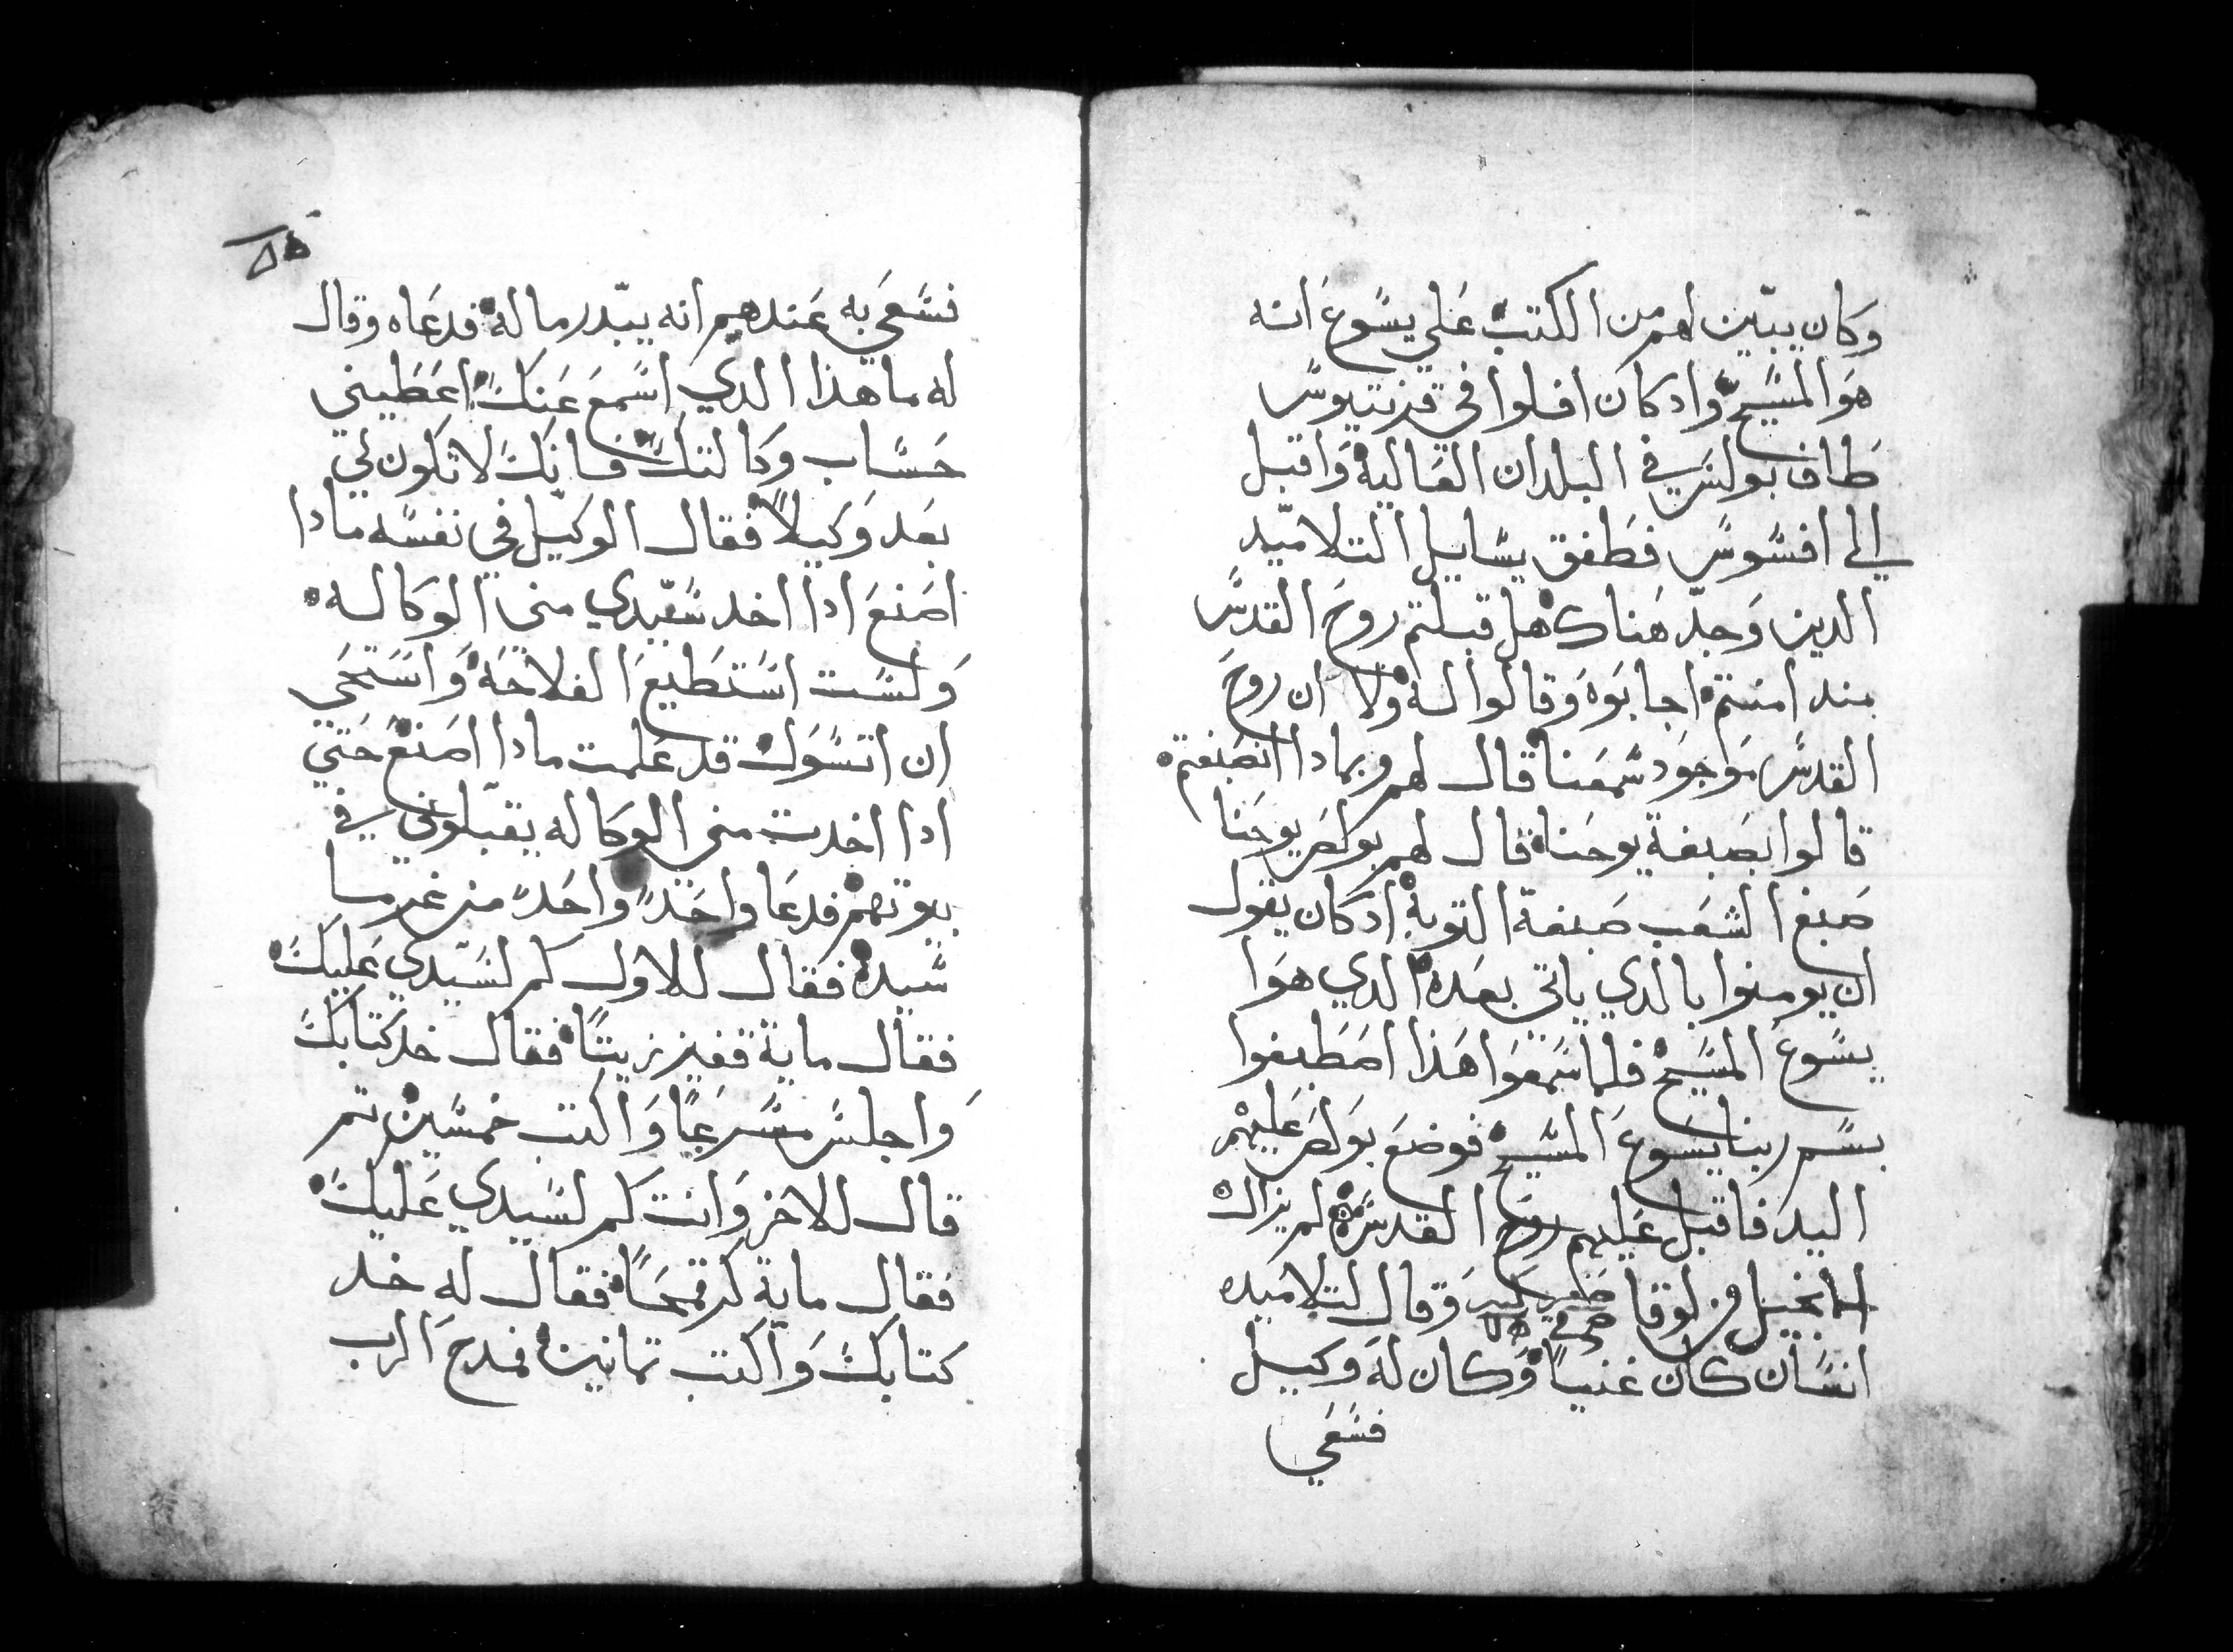 وكان يبيّن لهم من الكتب علي يسوع انه
هو المسيح واد كان افلوا في قرنتيوس
طاف بولس في البلدان العالية واقبل
الي افسوس فطفق يسايل التلاميد
الدين وجد هناك هل قبلتم روح القدس
مند امنتم اجابوه وقالوا له ولا ان روح
القدس موجود سمعنا قال لهم وبمادا انصبغتم
قالوا بصبغة يوحنا قال لهم بولص يوحنا
صبغ الشعب صبغة التوبة ادكان يقول
ان يومنوا بالدي ياتي بعده الدي هوا
يسوع المسيح فلما سمعوا هذا اصطبغوا
بسم ربنا يسوع المسيح فوضع بولص عليهم
اليد فاقبل عليهم روح القدس لم يزال
الانجيل من لوقا وقال لتلاميده
انسان كان غنياً وكان له وكيل
فسعي
فسعي به عندهم انه يبّدر ماله فدعاه وقال
له ما هذا الدي اسمع عنك اعطيني
حساب وكالتك فانك لا تكون لي
بعد وكيلاً فقال الوكيل في نفسه مادا
اصنع ادا اخد سيّدي مني الوكاله
ولست استطيع الفلاحة واستحي
ان اتسول قد علمت مادا اصنع حتي
ادا اخدت مني الوكاله يقبّلوني في
بيوتهم فدعا واحداً واحد من غرما
سيده فقال للاول كم لسيّدي عليك
فقال ماية قفيز زيتاً فقال خد كتابك
واجلس مسرعاً واكتب خمسين تم
قال للاخر وانت كم لسيدي عليك
فقال ماية كر قمحاً فقال له خد
كتابك واكتب تمانين فمدح الرب